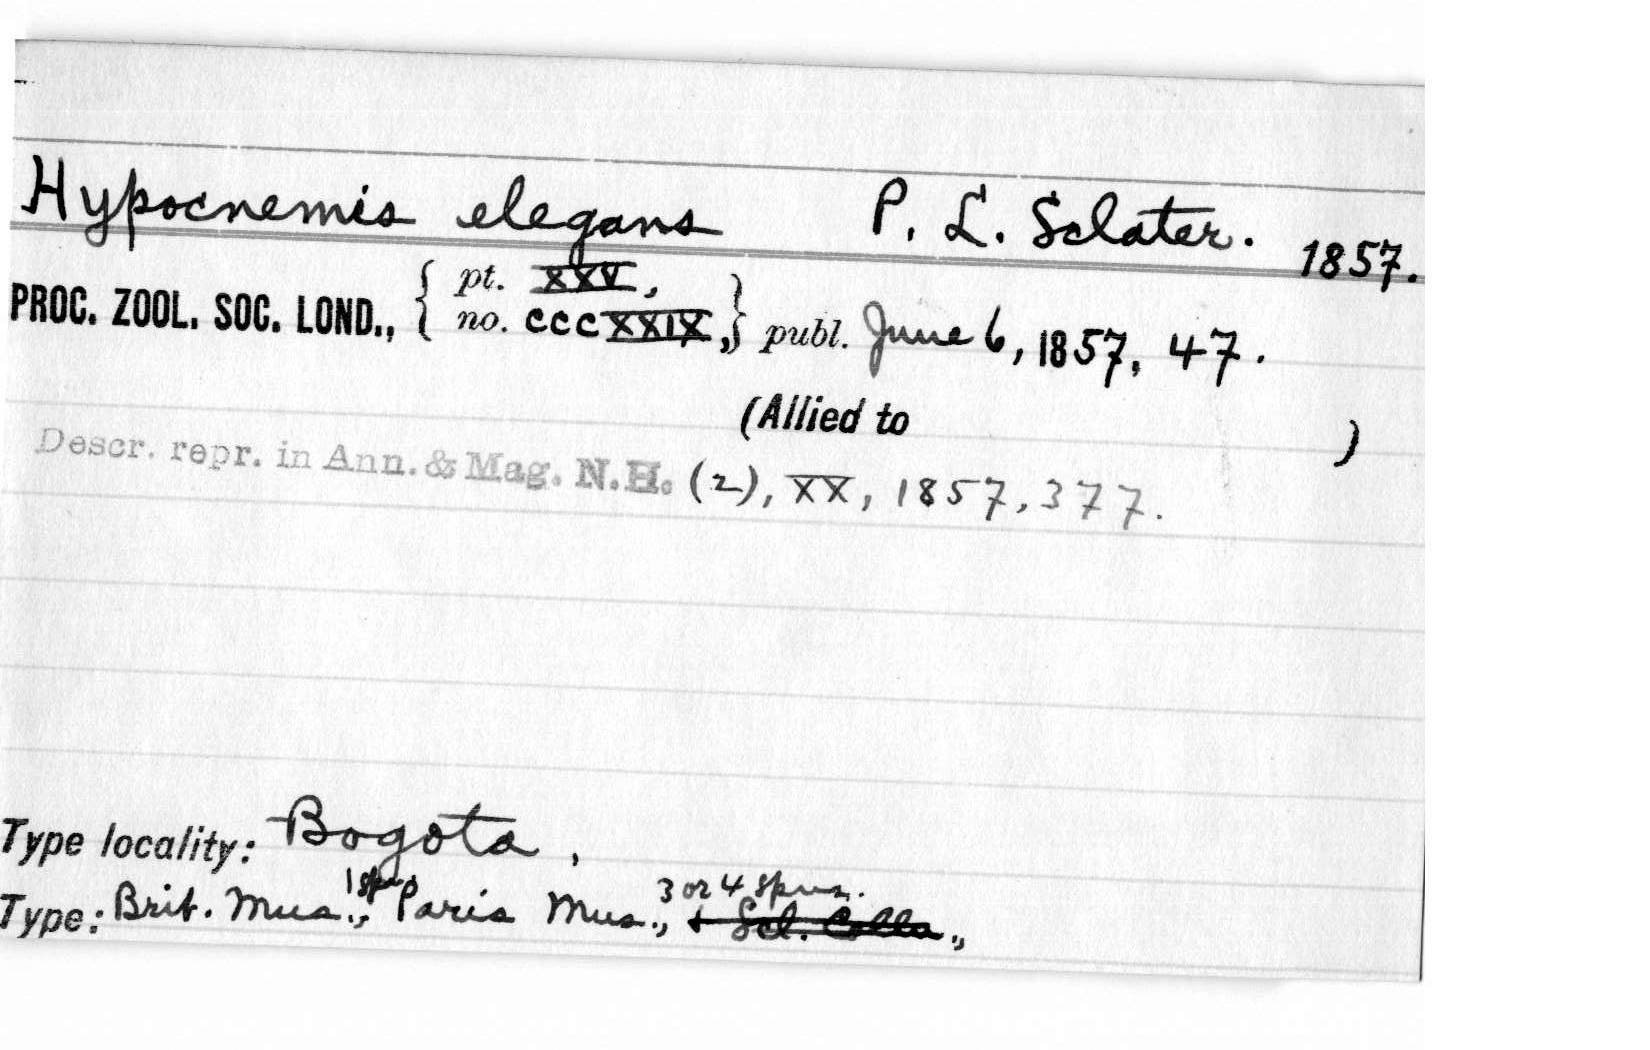 Hypocnemis elegans P. L. Sclater. 1857.
PROC. ZOOL. SOC. LOND., { pt. XXV, no. CCCXXIX, } publ. June 6, 1857, 47.
(Allied to )
Descr. repr. in Ann. & Mag. N.H. (2), XX, 1857, 377.
Type locality: Bogota,
1 spn. 3 or 4 spns.
Type: Brit. Mus., Paris Mus., + Scl. Colln.,